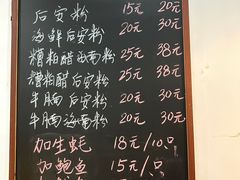 后安粉 15元 20元
海鲜后安粉 20元 30元
糟粕醋海南粉 25元 38元
糟粕醋后安粉 25元 38元
牛腩后安粉 20元 30元
牛腩海南粉 20元 30元
加生蚝 18元/10只
加鲍鱼 15元/只